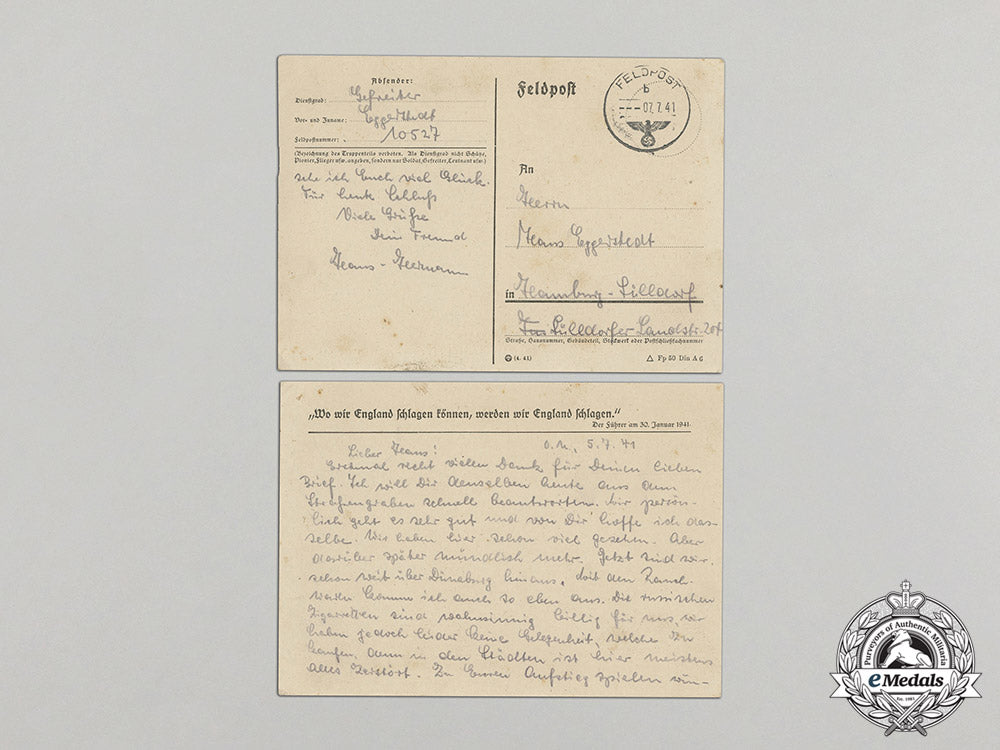 Absender:
Dienstgrad: Gefreiter
Vor- und Zuname: Eggerstedt
Feldpostnummer: 10527
(Bezeichnung des Truppenteils verboten. Als Dienstgrad nicht Schütze,
Pionier, Flieger usw. angeben, sondern nur Soldat, Gefreiter, Leutnant usw.)
ich Euch viel Glück.
Für heute Schluß
Viele Grüße
Dein Freund
Hans-Hermann
Feldpost
FELDPOST
b
07.7.41
An
Herrn
Hans Eggerstedt
in Hamburg-Sülldorf
Sülldorfer Landstr. 201
Straße, Hausnummer, Gebäudeteil, Stockwerk oder Postschließfachnummer
(4. 41)
Fp 50 Din A 6
„Wo wir England schlagen können, werden wir England schlagen.“
Der Führer am 30. Januar 1941
Lieber Hans! O.U., 5.7.41
Erstmal recht vielen Dank für Deinen lieben
Brief. Ich will Dir denselben heute aus dem
Straßengraben schnell beantworten. Mir persön-
lich geht es sehr gut und von Dir hoffe ich das-
selbe. Wir haben hier schon viel gesehen. Aber
darüber später mündlich mehr. Jetzt sind wir
schon weit über Dünaburg hinaus. Mit den Rauch-
waren komme ich auch so eben aus. Die russischen
Zigaretten sind wahnsinnig billig für uns, wir
haben jedoch leider keine Gelegenheit, welche zu
kaufen, denn in den Städten ist hier meistens
alles zerstört. Zu Euren Aufstieg spielen wün-
Purveyors of Authentic Militaria
eMedals
Est. 1985